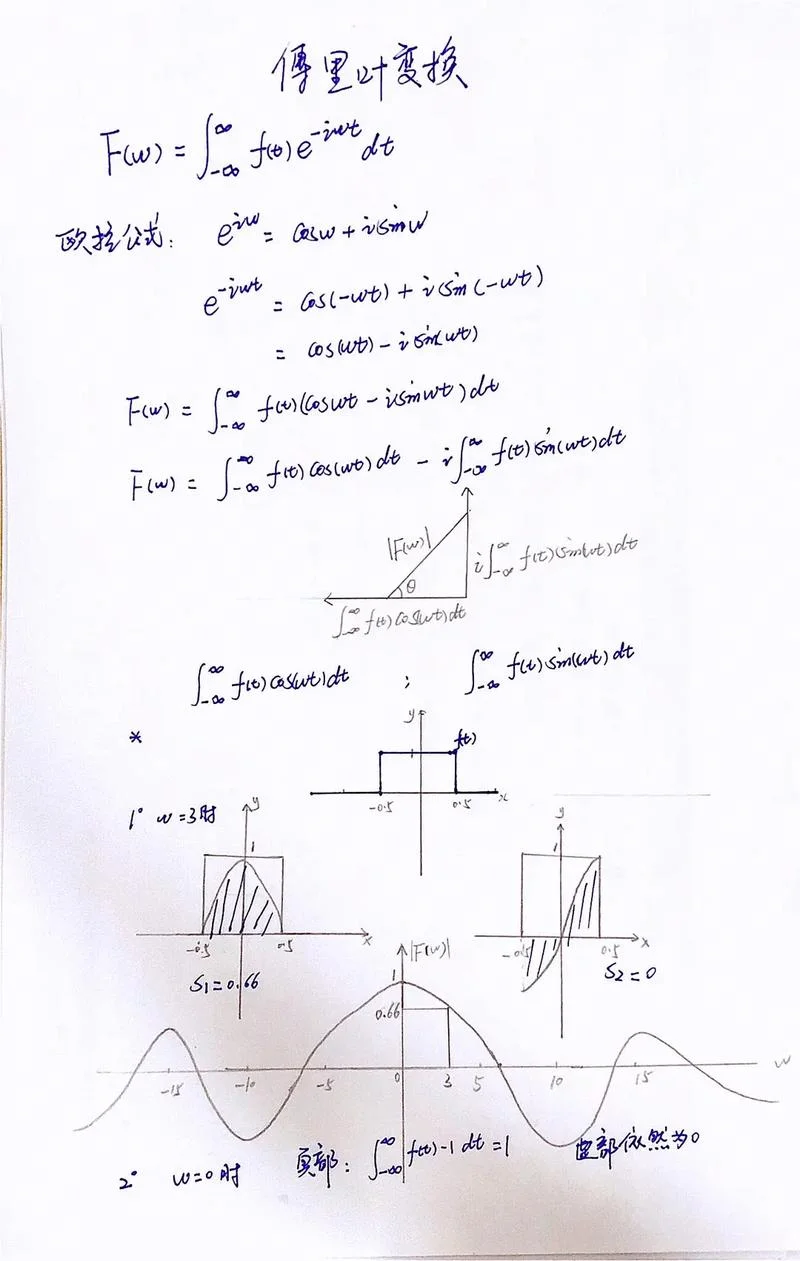 傅里叶变换
F(w) = ∫_{-∞}^{∞} f(t) e^{-iwt} dt
欧拉公式: e^{iw} = cosw + isinw
e^{-iwt} = cos(-wt) + isin(-wt)
= cos(wt) - isin(wt)
F(w) = ∫_{-∞}^{∞} f(t)(coswt - isinwt)dt
F(w) = ∫_{-∞}^{∞} f(t)cos(wt)dt - i∫_{-∞}^{∞} f(t)sin(wt)dt
|F(w)|
i∫_{-∞}^{∞} f(t)sin(wt)dt
θ
∫_{-∞}^{∞} f(t)cos(wt)dt
∫_{-∞}^{∞} f(t)cos(wt)dt ; ∫_{-∞}^{∞} f(t)sin(wt)dt
*
y
f(t)
-0.5 0.5 x
1° w=3时
y
1
-0.5 0.5 x
S₁=0.66
y
1
-0.5 0.5 x
S₂=0
|F(w)|
1
0.66
-15 -10 -5 0 3 5 10 15 w
2° w=0时 实部: ∫_{-∞}^{∞} f(t)-1 dt = 1 虚部依然为0